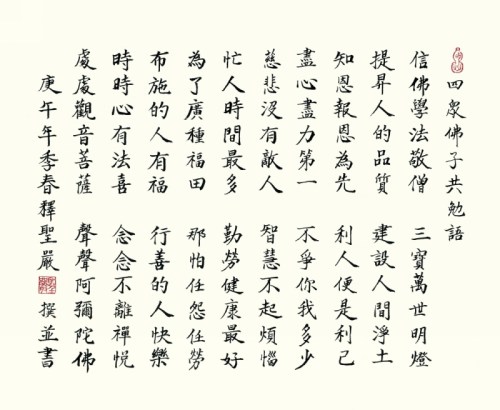 四眾佛子共勉語
信佛學法敬僧　三寶萬世明燈
提昇人的品質　建設人間淨土
知恩報恩為先　利人便是利己
盡心盡力第一　不爭你我多少
慈悲沒有敵人　智慧不起煩惱
忙人時間最多　勤勞健康最好
為了廣種福田　那怕任怨任勞
布施的人有福　行善的人快樂
時時心有法喜　念念不離禪悅
處處觀音菩薩　聲聲阿彌陀佛
庚午年季春釋聖嚴　撰並書